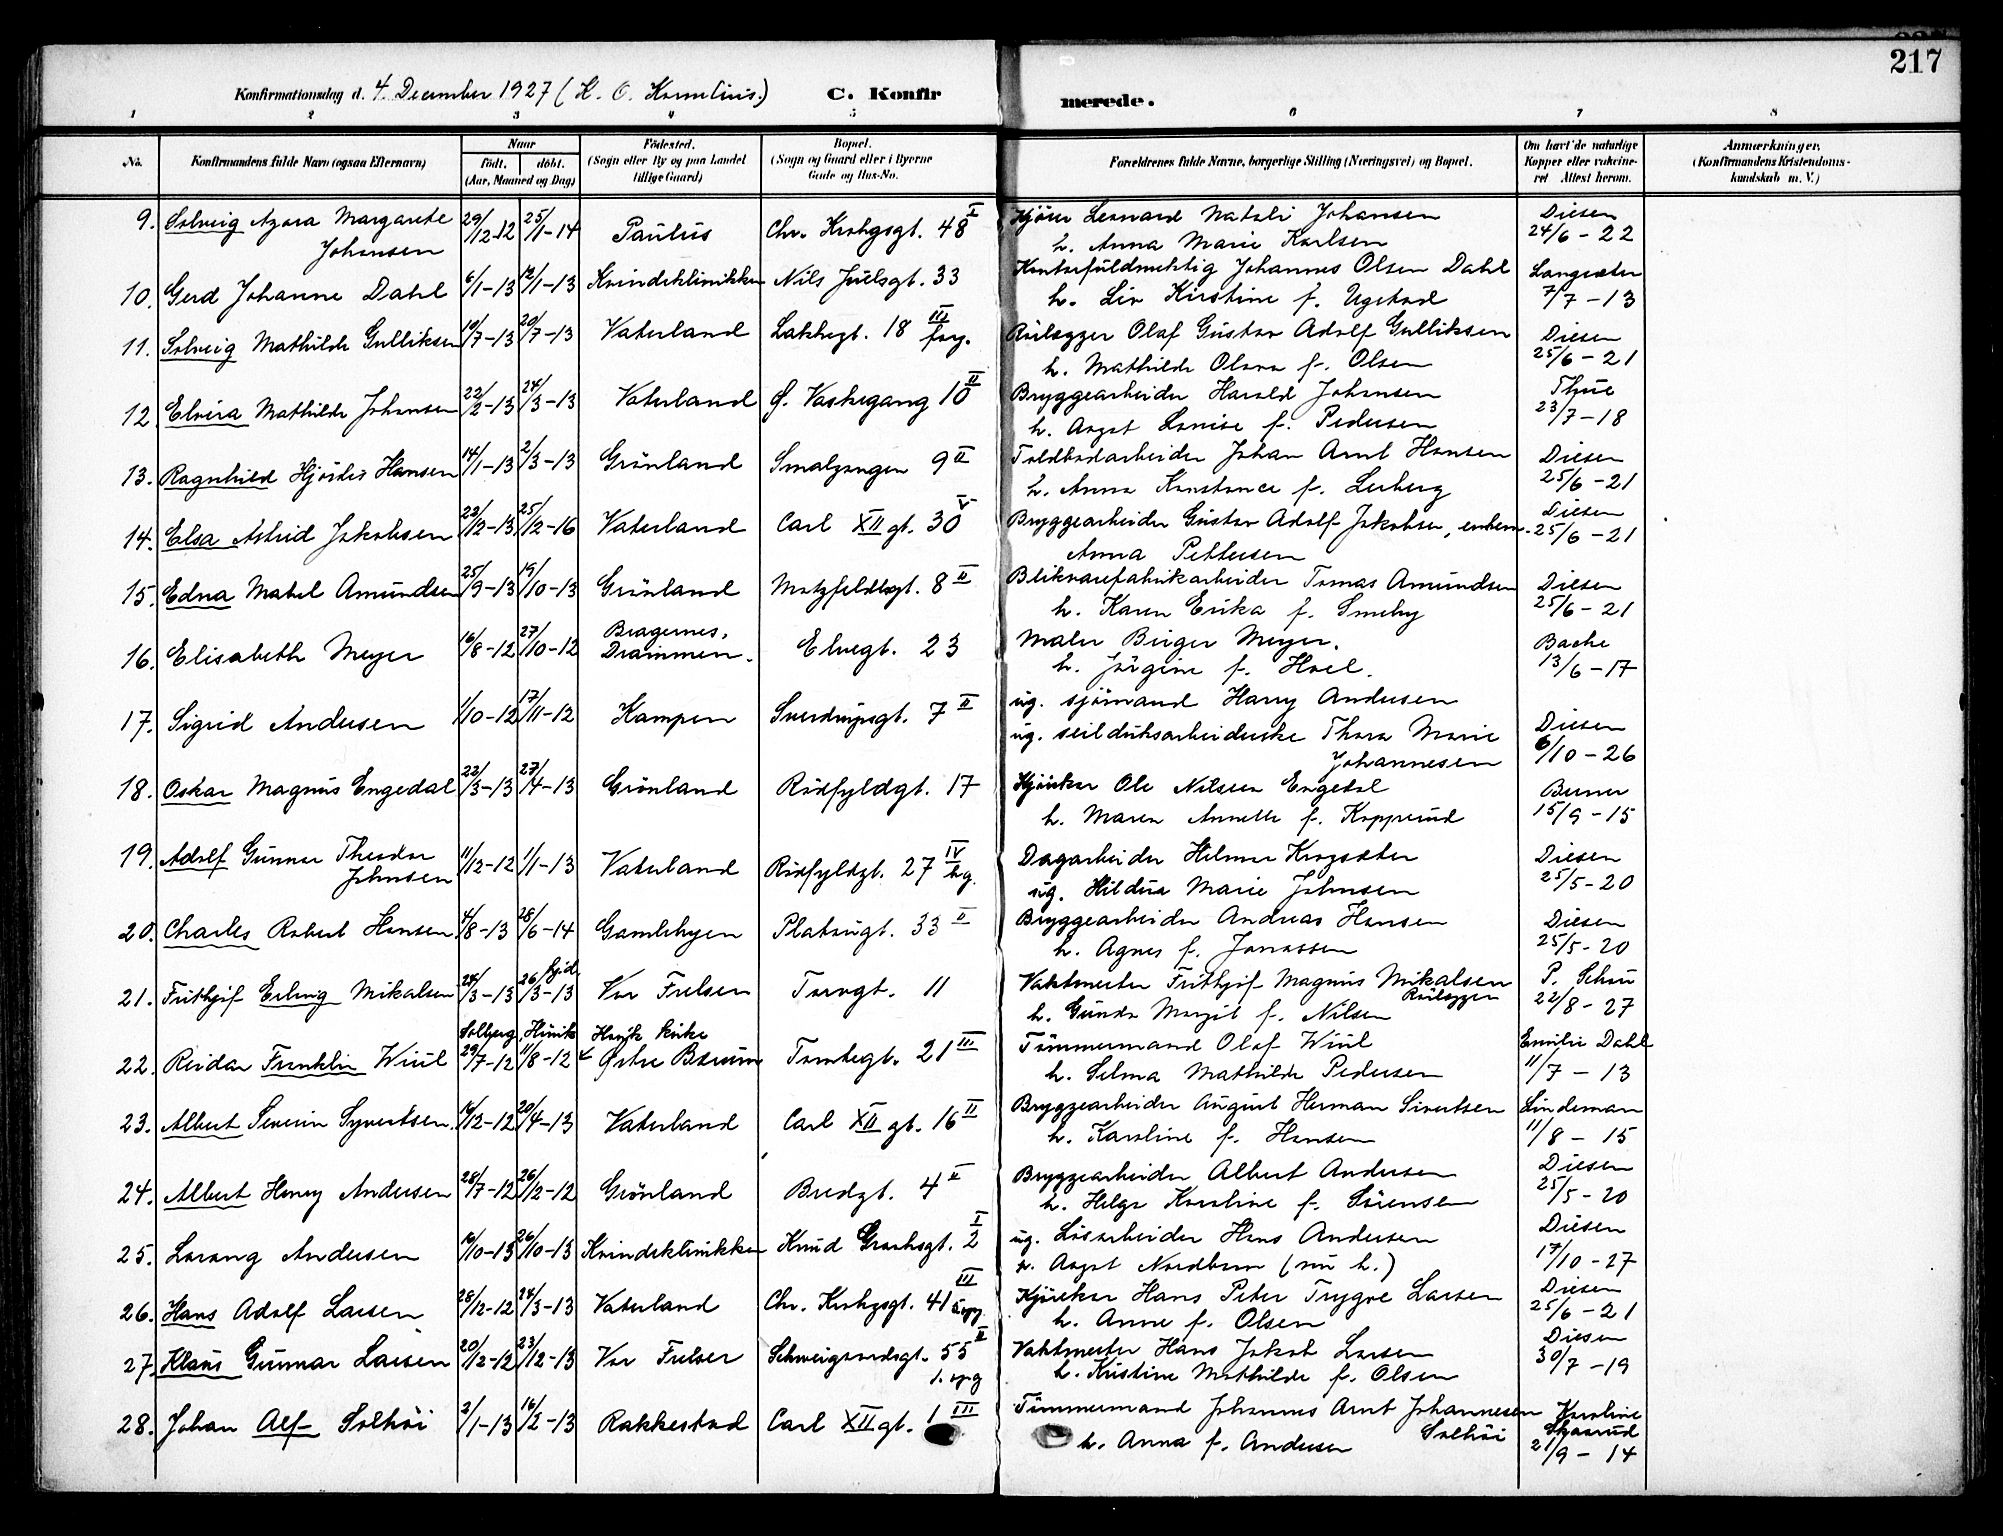 217
Konfirmationsdag d. 4. December 1927 (H. O. Kornelius.) C. Konfirmerede.
1 2 3 4 5 6 7 8
No. Konfirmandens fulde Navn (ogsaa Efternavn) Naar født. døbt. (Aar, Maaned og Dag) Fødested. (Sogn eller By og paa Landet tillige Gaard) Bopæl. (Sogn og Gaard eller i Byerne Gade og Hus-No. Forældrenes fulde Navne, borgerlige Stilling (Næringsvei) og Bopæl. Om havt de naturlige Kopper eller vaccineret Attest herom. Anmærkninger, (Konfirmandens Kristendomskundskab m. V.)
9. Solveig Azora Margarete 29/12-12 25/1-14 Paulus Chr. Krohgsgt. 48 I Kjører Leonard Natali Johansen Diesen
Johansen h. Anna Marie Karlsen 24/6-22
10. Gerd Johanne Dahl 6/1-13 12/1-13 Kvindeklinikken Nils Juelsgt. 33 Kontorfuldmektig Johannes Olsen Dahl Langsæter
h. Liv Kirstine f. Ugstad 7/7-13
11. Solveig Mathilde Gulliksen 10/7-13 20/7-13 Vaterland Lakkegt. 18 III forg. Rørlægger Olaf Gustav Adolf Gulliksen Diesen
h. Mathilde Olava f. Olsen 25/6-21
12. Elvira Mathilde Johansen 22/2-13 24/3-13 Vaterland Ø. Vaskegang 10 II Bryggearbeider Harald Johansen Thue
h. Aagot Lovise f. Pedersen 23/7-18
13. Ragnhild Hjørdis Hansen 14/1-13 2/3-13 Grønland Smalgangen 9 II Toldbodarbeider Johan Arnt Hansen Diesen
h. Anna Konstance f. Lerberg 25/6-21
14. Elsa Astrid Jakobsen 22/12-13 25/12-16 Vaterland Carl XII gt. 30 V Bryggearbeider Gustav Adolf Jakobsen, enkem. Diesen
Anna Pettersen 25/6-21
15. Edna Mabel Amundsen 25/9-13 19/10-13 Grønland Motzfeldtsgt. 8 II Blikvarefabrikarbeider Tomas Amundsen Diesen
h. Karen Erika f. Smeby 25/6-21
16. Elisabeth Meyer 16/8-12 27/10-12 Bragernes, Drammen. Elvegt. 23 Maler Birger Meyer. Bache
h. Jørgine f. Hoel. 13/6-17
17. Sigrid Andersen 1/10-12 17/11-12 Kampen Sverdrupsgt. 7 II ug. sjømand Harry Andersen
ug. seilduksarbeiderske Thora Marie Johannesen Diesen 6/10-26
18. Oskar Magnus Engedal 22/3-13 27/4-13 Grønland Rødfyldgt. 17 Kjøreker Ole Nilsen Engedal Berner
h. Maren Annette f. Kopperud 15/9-15
19. Adolf Gunnar Theodor 11/12-12 1/1-13 Vaterland Rødfyldgt. 27 IV bg. Dagarbeider Hilmar Krogsæter Diesen
Johnsen ug. Hildur Marie Johnsen 25/5-20
20. Charles Robert Hansen 4/8-13 28/6-14 Gamlebyen Platougt. 33 II Bryggearbeider Andreas Hansen Diesen
h. Agnes f. Jonassen 25/5-20
21. Frithjof Erling Mikalsen 24/3-13 26/3-13 hjd. Vor Frelsen Torvgt. 11 Vaktmester Frithjof Magnus Mikalsen P. Scheu
Rørlægger
h. Gunda Margit f. Nilsen 22/8-27
Solberg, Hurik Hasle kirke
22. Reidar Franklin Wiül 29/7-12 11/8-12 Østre Bærum Tomtegt. 21 III Tømmermand Olaf Wiül Emilie Dahl
h. Selma Mathilde Pedersen 11/7-13
23. Albert Severin Syvertsen. 16/12-12 20/4-13 Vaterland Carl XII gt. 16 II Bryggearbeider August Herman Sivertsen Lindeman
h. Karoline f. Hansen 11/8-15
24. Albert Henry Andersen 28/7-12 26/12-12 Grønland Bredgt. 4 II Bryggearbeider Albert Andersen Diesen
h. Helga Karoline f. Sørensen 25/5-20
25. Lorang Andersen 16/10-13 26/10-13 Kvindeklinikken Knud Graahsgt. 2 I ug. Løsarbeider Hans Andersen Diesen
Aagot Nordbern (nu h.) 17/10-27
26. Hans Adolf Larsen 28/12-12 24/3-13 Vaterland Chr. Krohgsgt. 41 III opg Kjøreker Hans Peter Trygve Larsen Diesen
h. Anne f. Olsen 25/6-21
27. Klaus Gunnar Larsen 20/12-12 23/12-13 Vor Frelser Schweigaardsgt. 55 II Vaktmester Hans Jakob Larsen Diesen
1. opg h. Kristine Mathilde f. Olsen 30/7-19
28. Johan Alf Solhøi 2/1-13 16/2-13 Rakkestad Carl XII gt. 1 III Tømmermand Johannes Arnt Johannesen Solhøi Karoline Skaarud
h. Anna f. Andersen 21/9-14